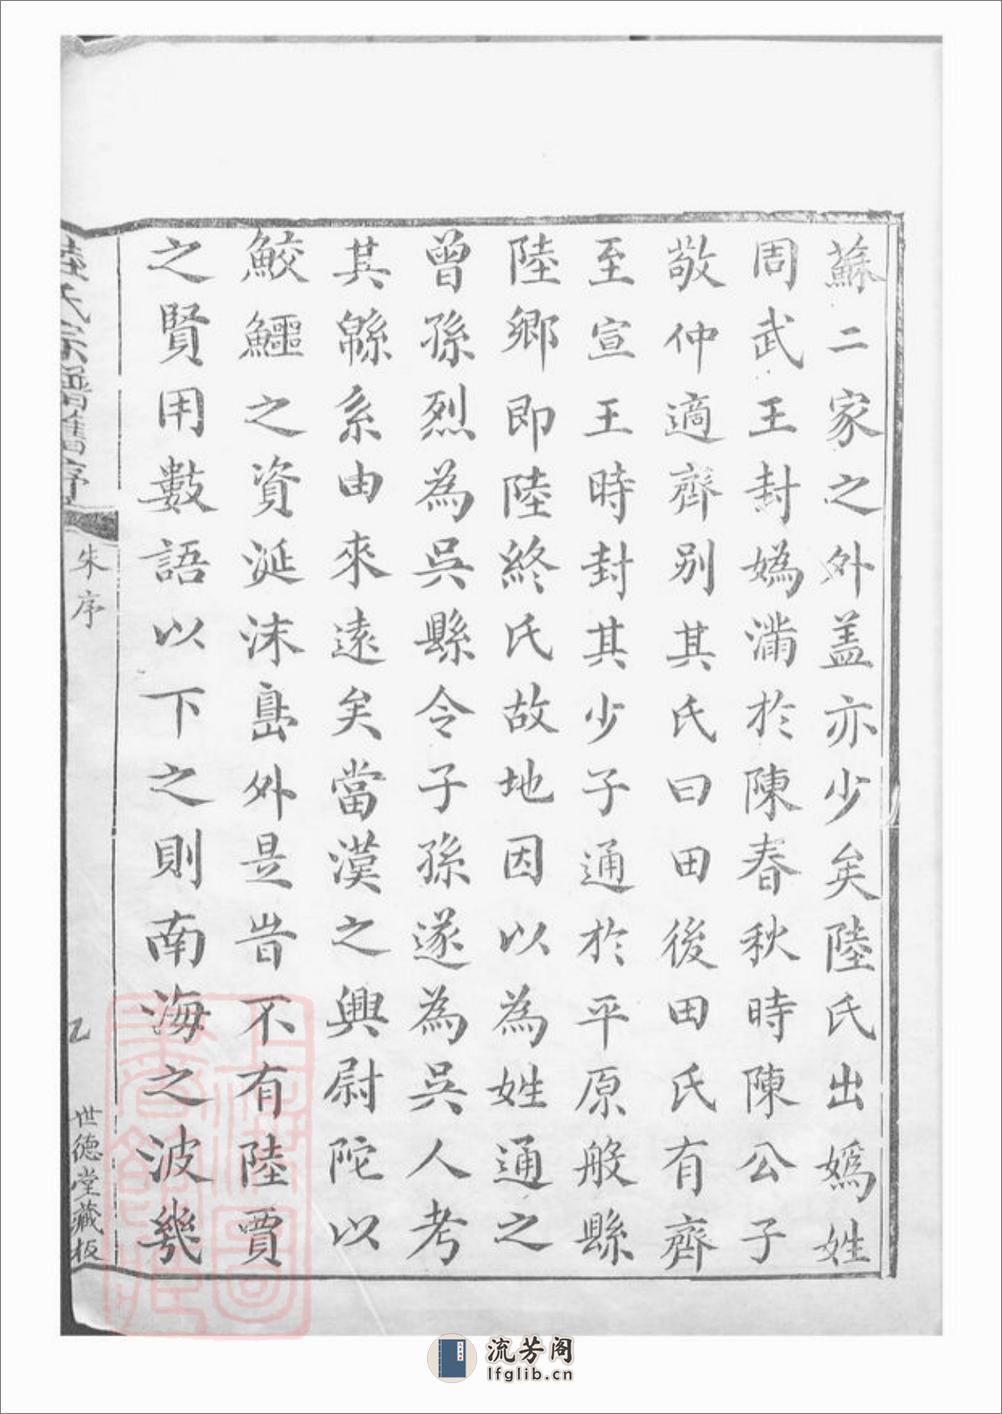 蘇二家之外盖亦少矣陸氏出嬀姓
周武王封嬀滿於陳春秋時陳公子
敬仲適齊别其氏曰田後田氏有齊
至宣王時封其少子通於平原般縣
陸鄉即陸終氏故地因以為姓通之
曾孫烈為吳縣令子孫遂為吳人考
其緜系由來遠矣當漢之興尉陀以
鮫鱷之資涎沫島外是昔不有陸賈
之賢用數語以下之則南海之波㡬
陸氏宗譜舊序
朱序
乙
世德堂藏板
流芳阁
lfglib.cn